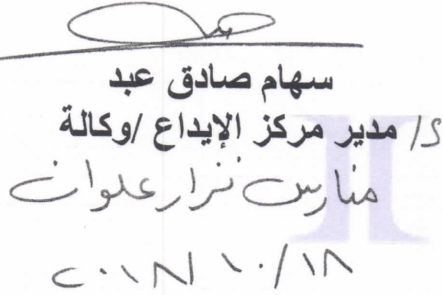 سهام صادق عبد
د/ مدير مركز الإيداع /وكالة
نزار علوان
٢٠١٨/١٠/١٨